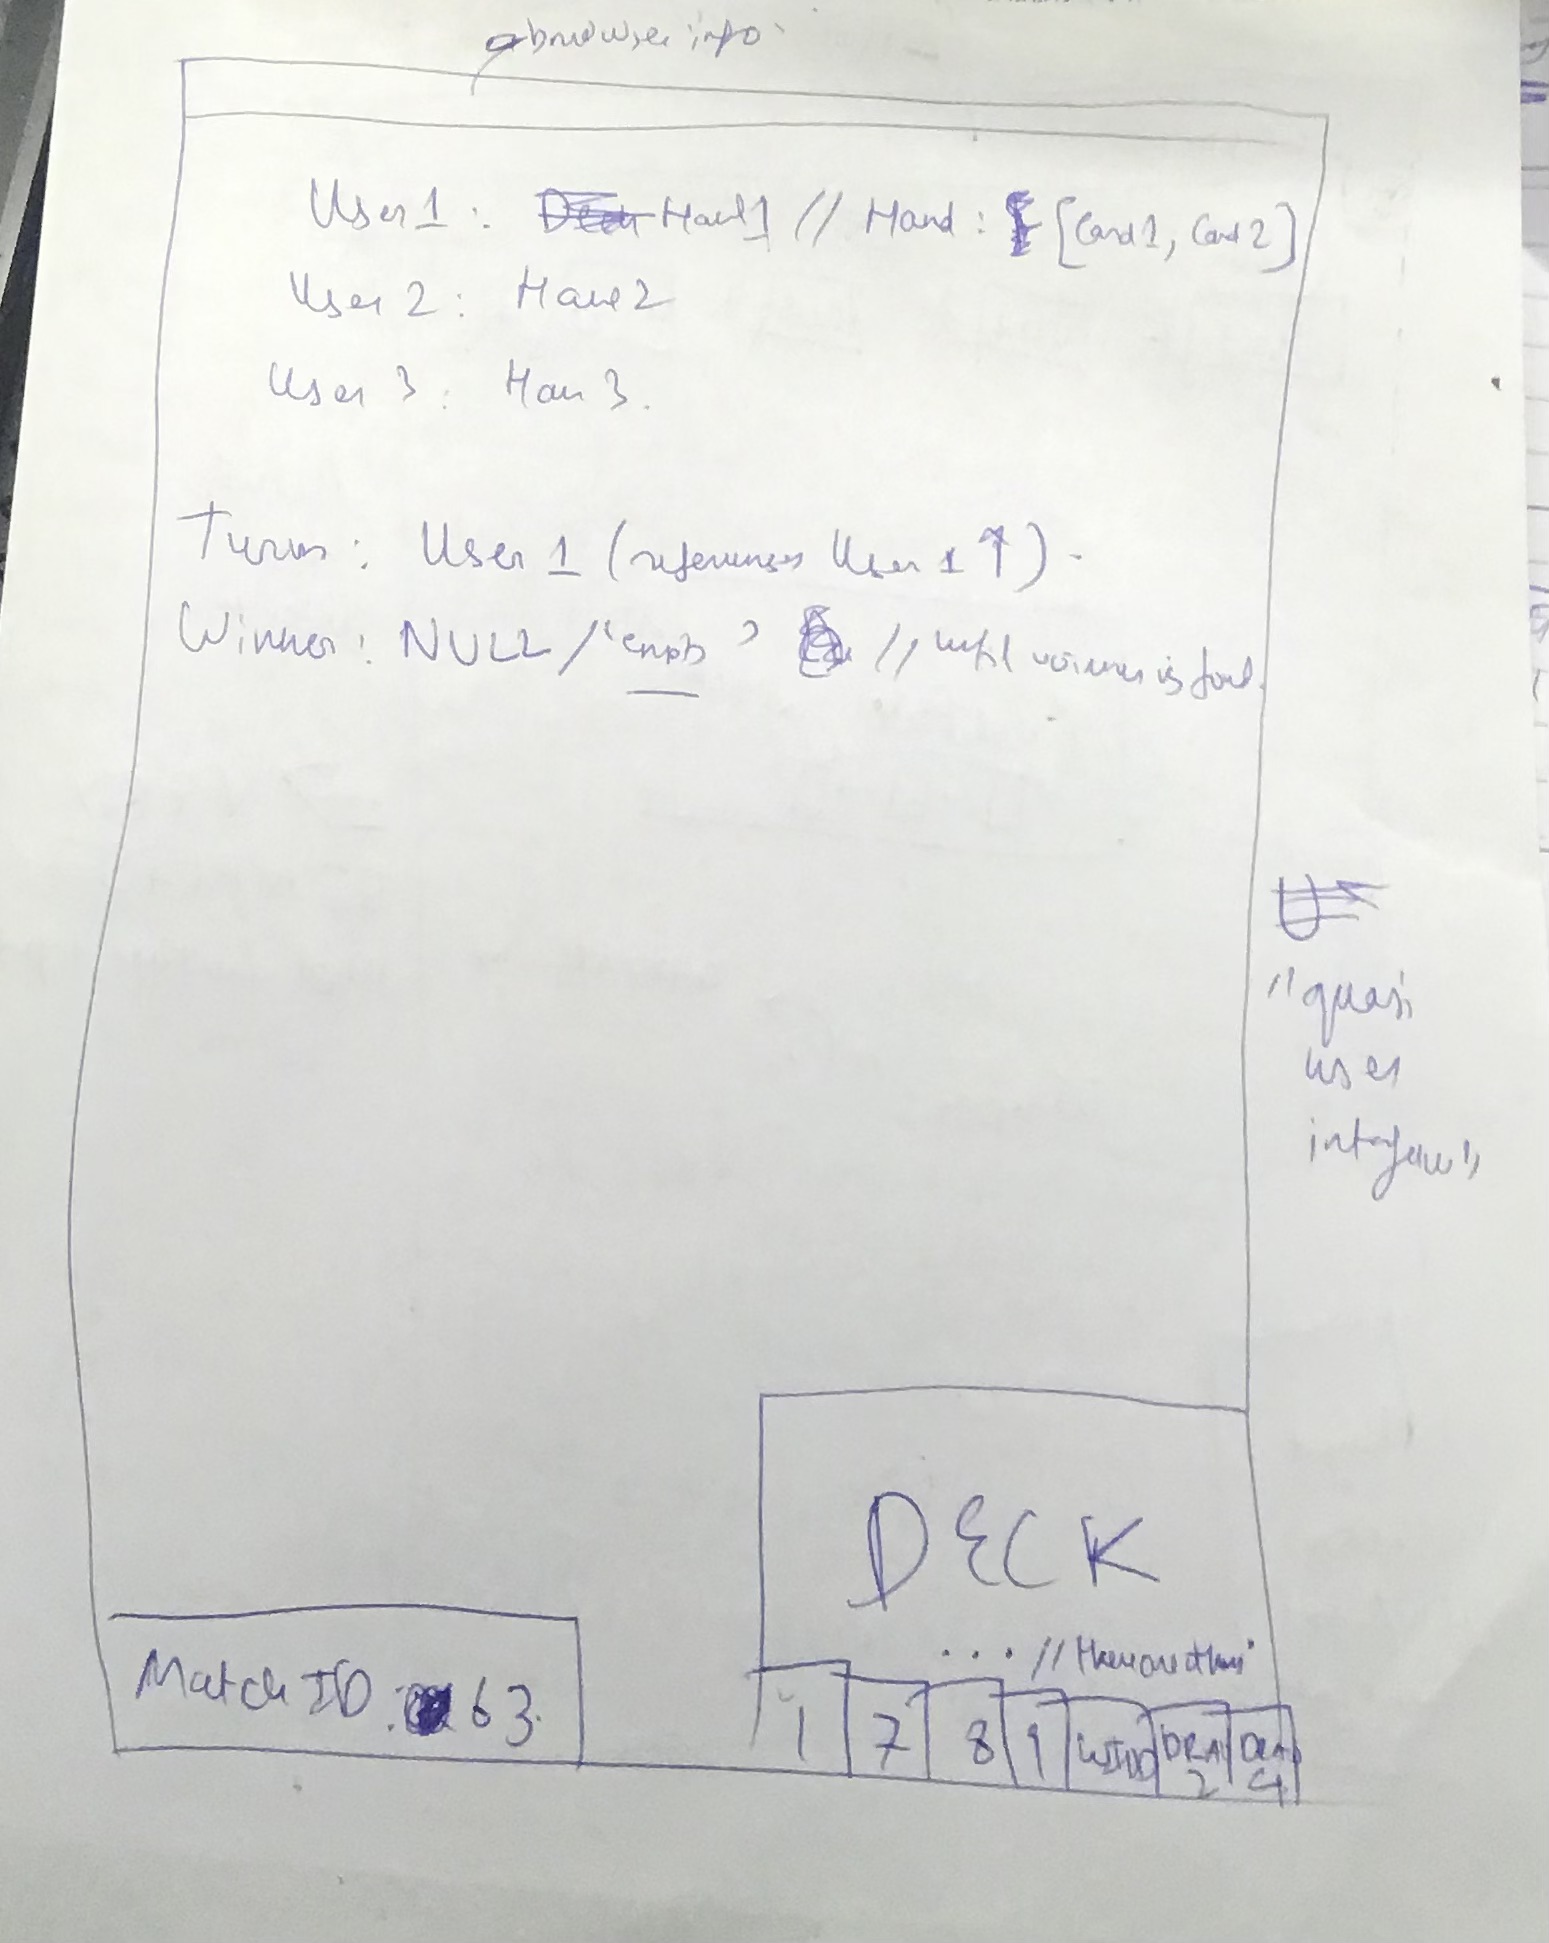 browser info
User 1 : Hand 1 // Hand : [Card 1, Card 2]
User 2 : Hand 2
User 3 : Han 3.
Turn : User 1 (references User 1 ↑) -
Winner : NULL / 'empty' // until winner is found.
"quasi
user
interface"
DECK
... //
Match ID : 63.
1 7 8 9 WILD DRA 2 DRA 4